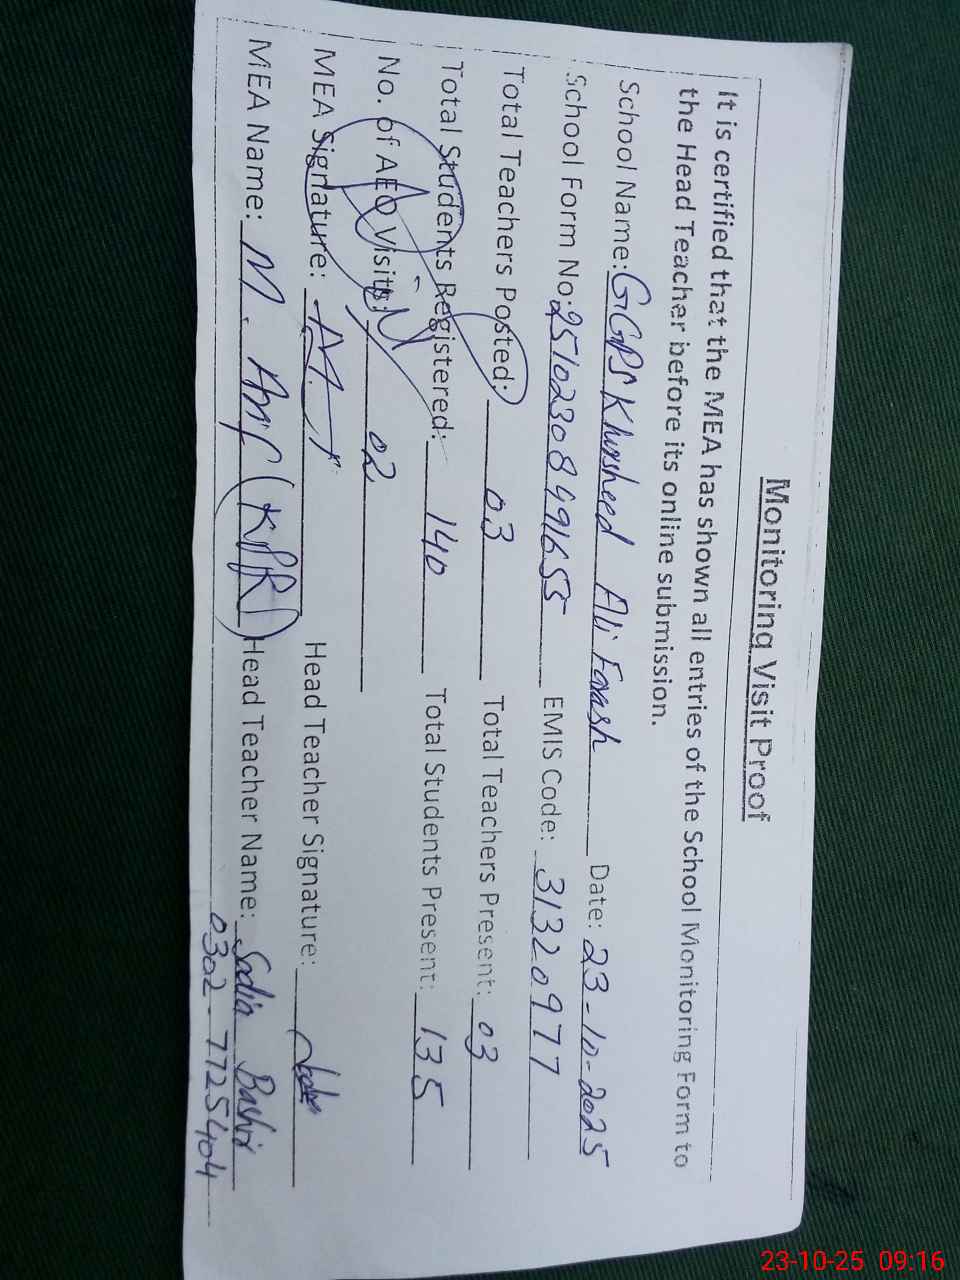 Monitoring Visit Proof
It is certified that the MEA has shown all entries of the School Monitoring Form to
the Head Teacher before its online submission.
School Name: GGPS Khursheed Ali Farash Date: 23-10-2025
School Form No: EMIS Code: 31320977
Total Teachers Posted: 03 Total Teachers Present: 03
Total Students Registered: 140 Total Students Present: 135
No. of AEO Visits: 02
MEA Signature: Head Teacher Signature:
MEA Name: M. (KPR) Head Teacher Name: Sadia Bashir
0302-7725404
23-10-25 09:16